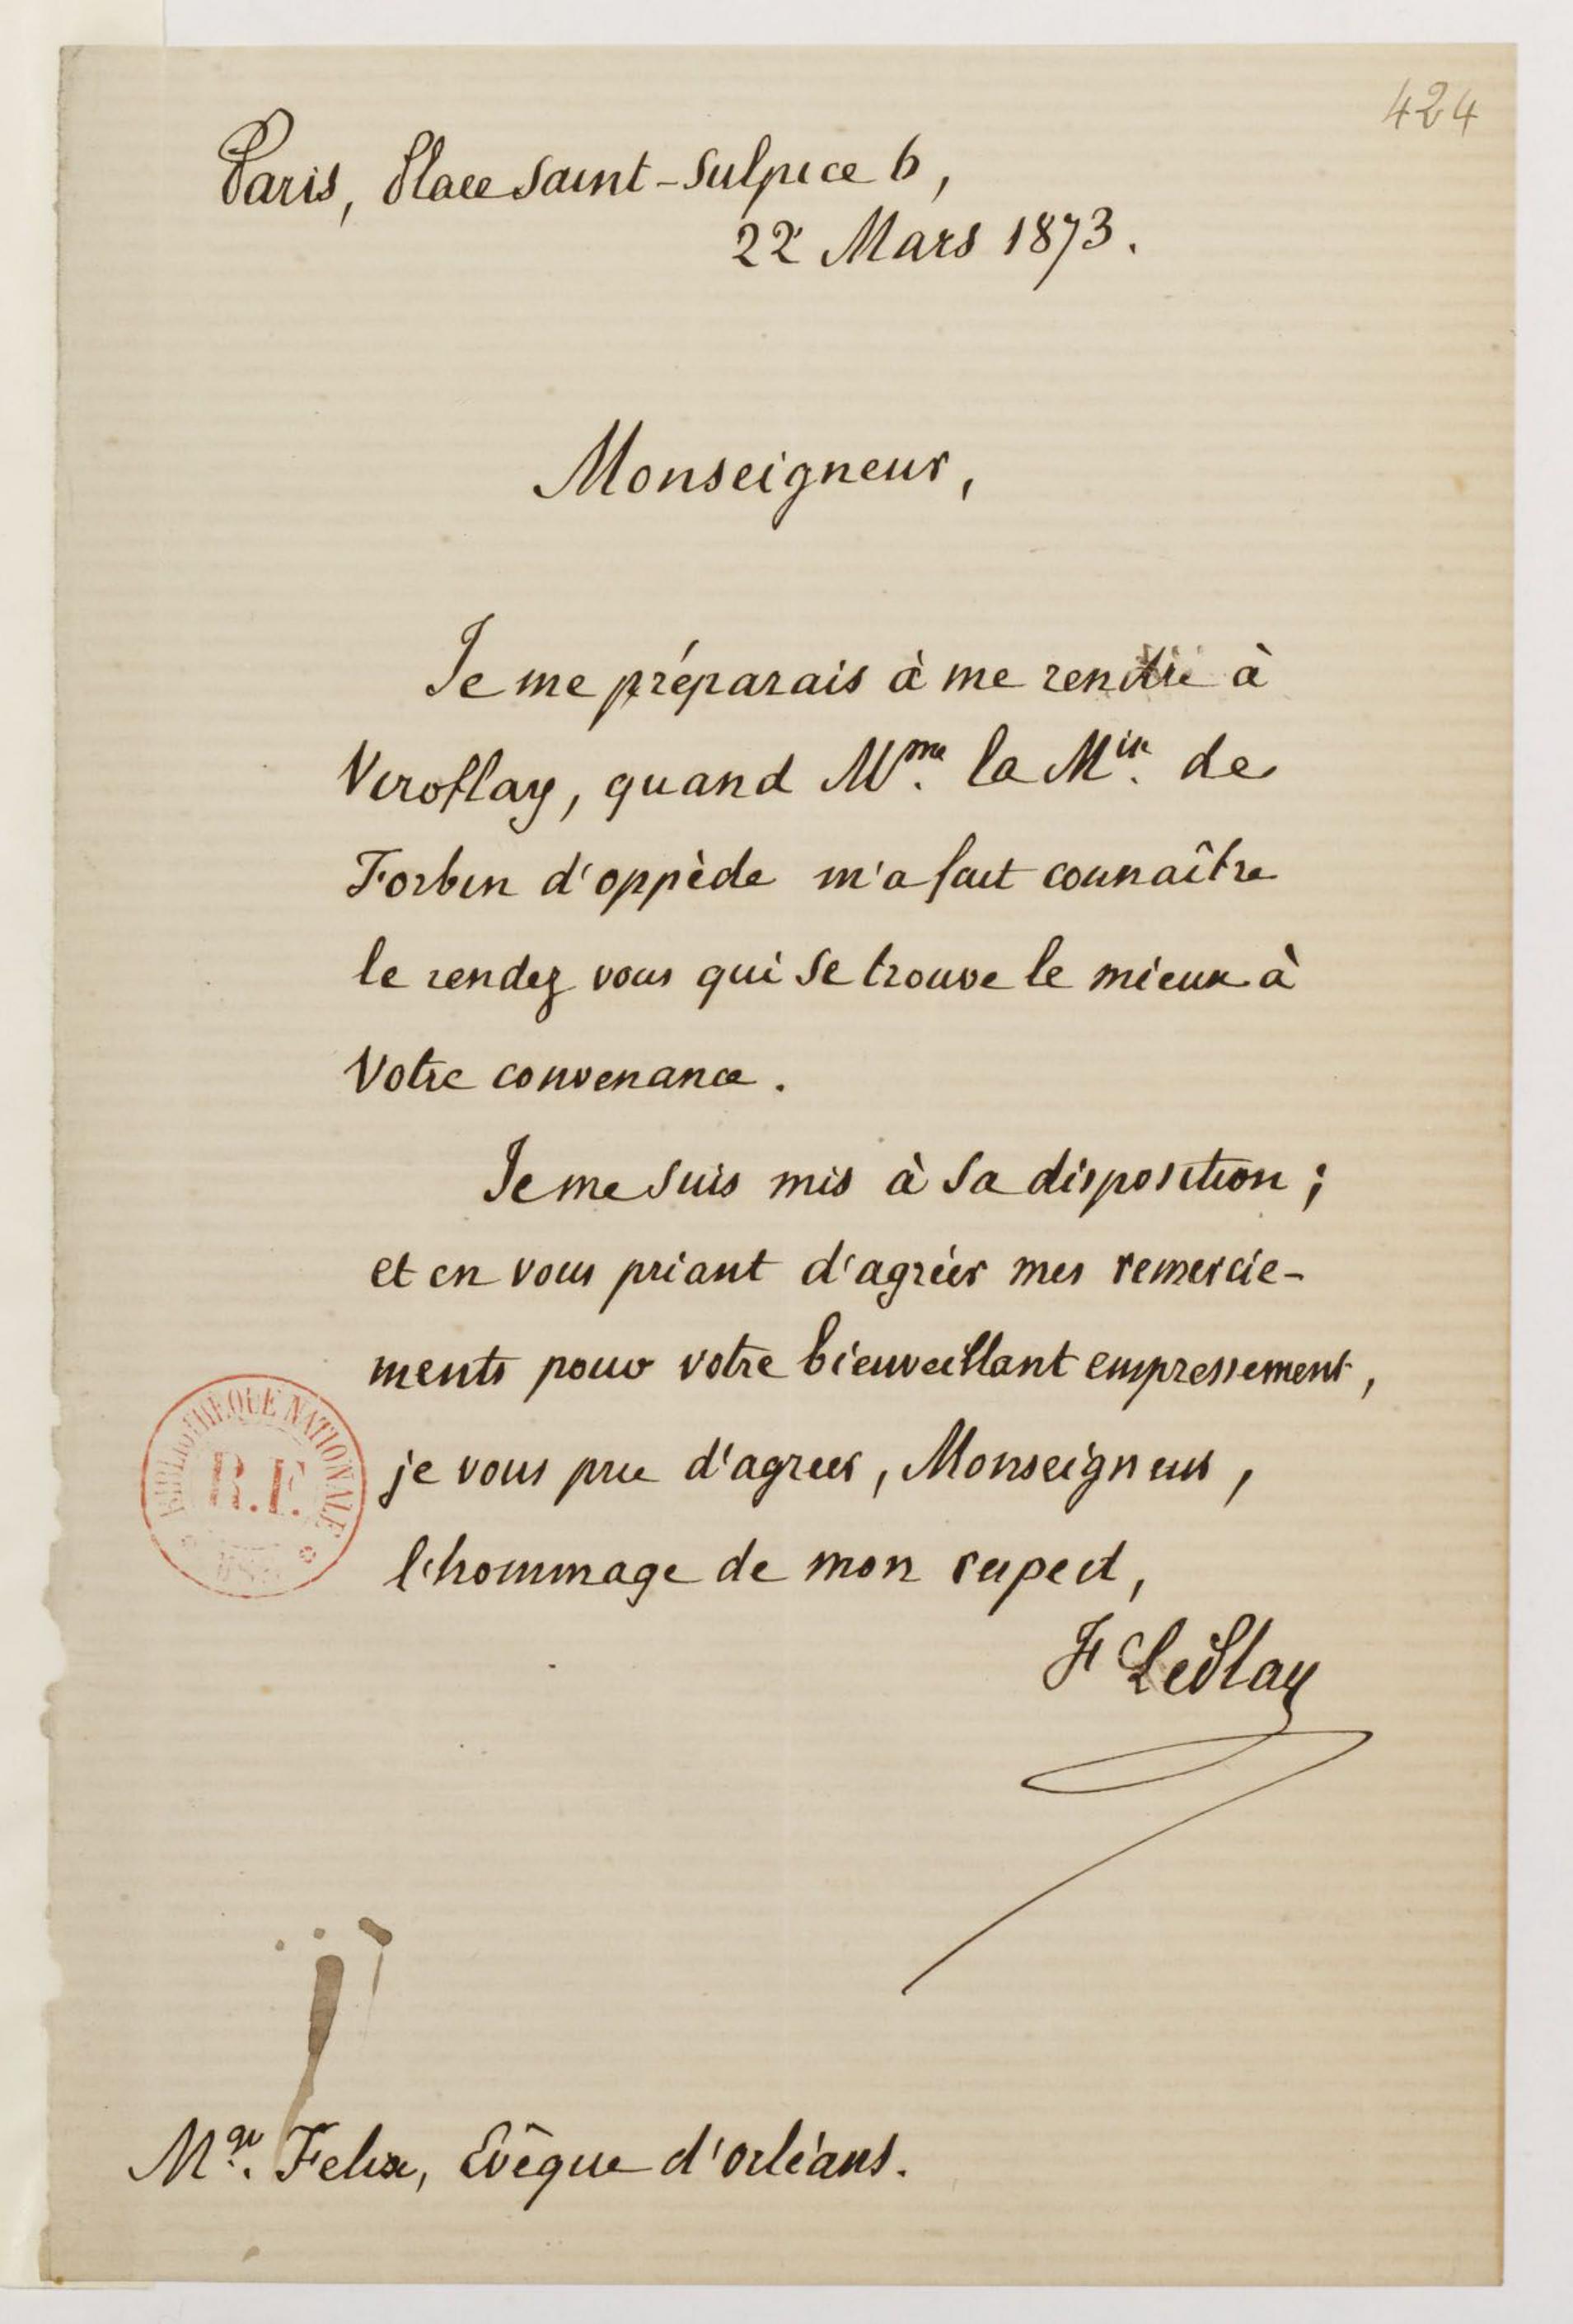 424
Paris, Place Saint-Sulpice 6,
22 Mars 1873.
Monseigneur,
Je me préparais à me rendre à
Viroflay, quand Mme. la Mise. de
Forbin d'oppède m'a fait connaître
le rendez vous qui se trouve le mieux à
Votre convenance.
Je me suis mis à sa disposition ;
et en vous priant d'agréér mes remercie-
ments pour votre bienveillant empressement,
je vous prie d'agreer, Monseigneur,
l'hommage de mon respect,
F LePlay
BIBLIOTHEQUE NATIONALE
R.F.
Mgr. Felix, Evêque d'orléans.